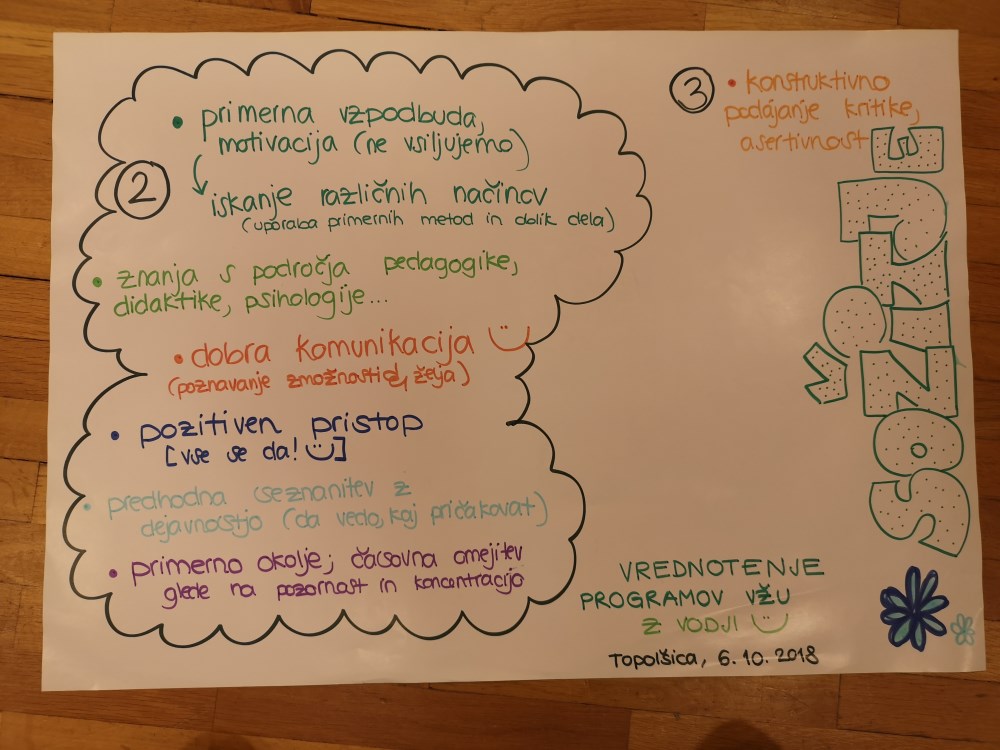 2
• primerna vzpodbuda,
motivacija (ne vsiljujemo)
↳ iskanje različnih načinov
(uporaba primernih metod in oblik dela)
• znanja s področja pedagogike,
didaktike, psihologije...
• dobra komunikacija
(poznavanje zmožnosti, želja)
• pozitiven pristop
[vse se da! ☺]
• predhodna seznanitev z
dejavnostjo (da vedo, kaj pričakovat)
• primerno okolje; časovna omejitev
glede na pozornost in koncentracijo
3
• konstruktivno
podajanje kritike,
asertivnost
SOŽITJE
VREDNOTENJE
PROGRAMOV VŽU
Z VODJI ☺
Topolšica, 6.10.2018